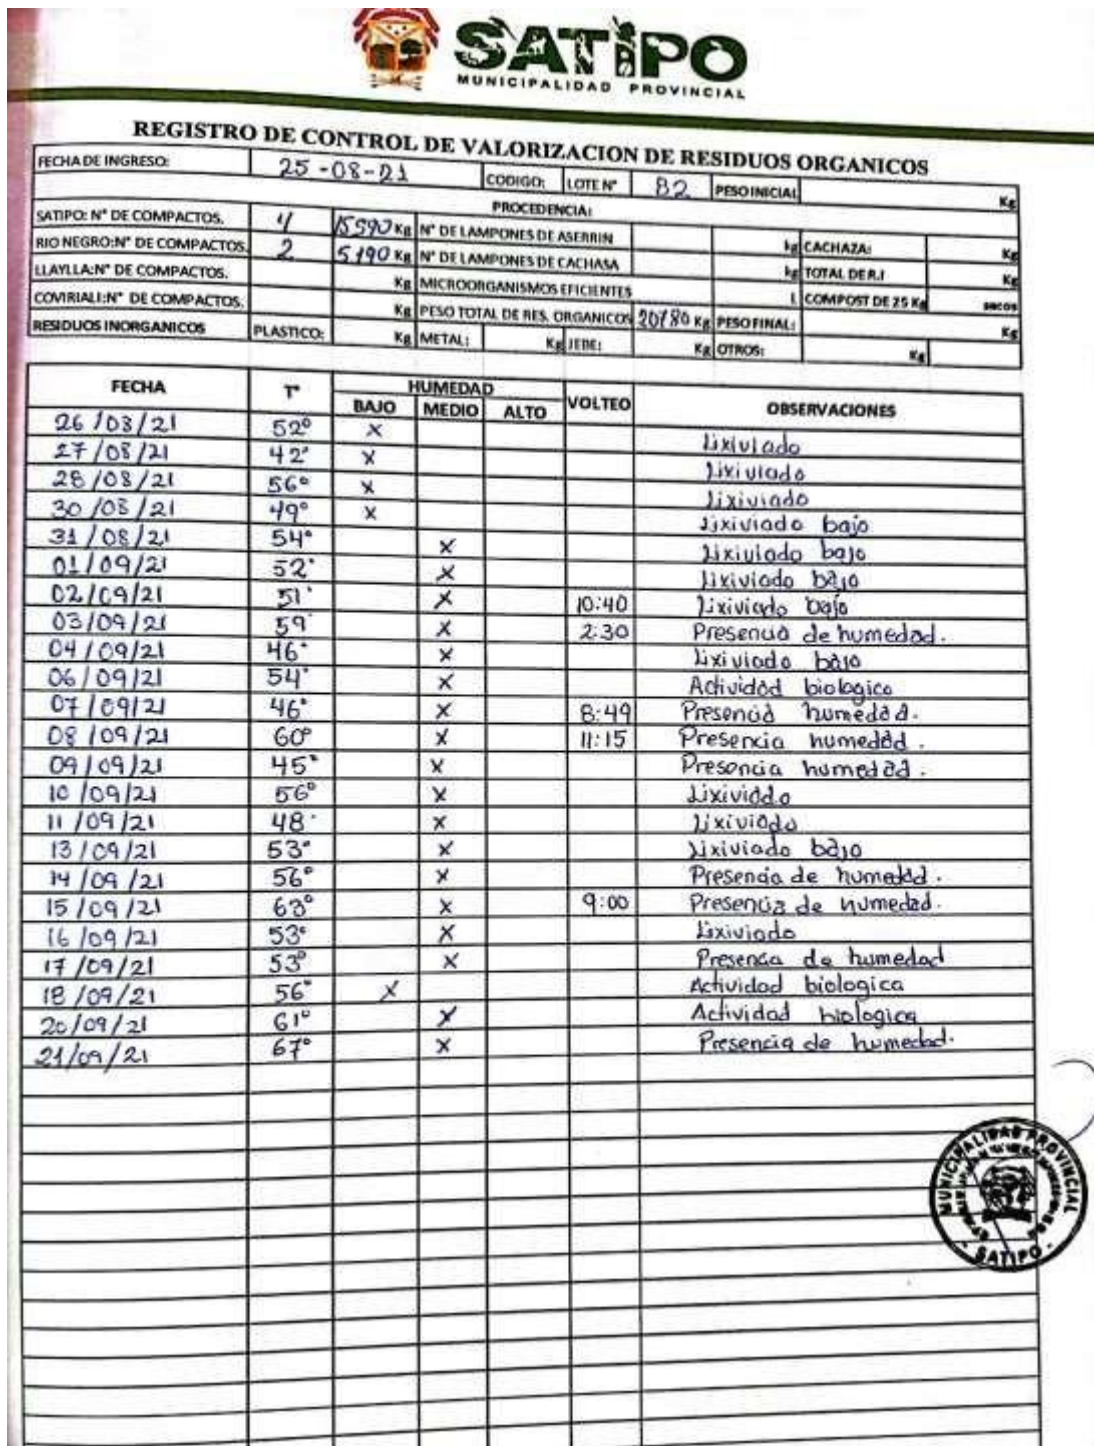 SATIPO
MUNICIPALIDAD PROVINCIAL
REGISTRO DE CONTROL DE VALORIZACION DE RESIDUOS ORGANICOS
FECHA DE INGRESO: 25-08-21 CODIGO: LOTE N° 82 PESO INICIAL Kg
PROCEDENCIA:
SATIPO: N° DE COMPACTOS. 4 15590 Kg N° DE LAMPONES DE ASERRIN kg CACHAZA: Kg
RIO NEGRO: N° DE COMPACTOS. 2 5190 Kg N° DE LAMPONES DE CACHASA kg TOTAL DE R.I Kg
LLAYLLA: N° DE COMPACTOS. Kg MICROORGANISMOS EFICIENTES L COMPOST DE 25 Kg sacos
COVIRIALI: N° DE COMPACTOS. Kg PESO TOTAL DE RES. ORGANICOS 20780 Kg PESO FINAL: Kg
RESIDUOS INORGANICOS PLASTICO: Kg METAL: Kg JEBE: Kg OTROS: Kg
FECHA T° HUMEDAD VOLTEO OBSERVACIONES
BAJO MEDIO ALTO
26/08/21 52° X Lixiviado
27/08/21 42° X Lixiviado
28/08/21 56° X Lixiviado
30/08/21 49° X Lixiviado bajo
31/08/21 54° X Lixiviado bajo
01/09/21 52° X Lixiviado bajo
02/09/21 51° X 10:40 Lixiviado bajo
03/09/21 59° X 2:30 Presencia de humedad.
04/09/21 46° X Lixiviado bajo
06/09/21 54° X Actividad biologico
07/09/21 46° X 8:49 Presencia humedad.
08/09/21 60° X 11:15 Presencia humedad.
09/09/21 45° X Presencia humedad.
10/09/21 56° X Lixiviado
11/09/21 48° X Lixiviado
13/09/21 53° X Lixiviado bajo
14/09/21 56° X Presencia de humedad.
15/09/21 63° X 9:00 Presencia de humedad.
16/09/21 53° X Lixiviado
17/09/21 53° X Presencia de humedad
18/09/21 56° X Actividad biologica
20/09/21 61° X Actividad biologica
21/09/21 67° X Presencia de humedad.
MUNICIPALIDAD PROVINCIAL
SATIPO